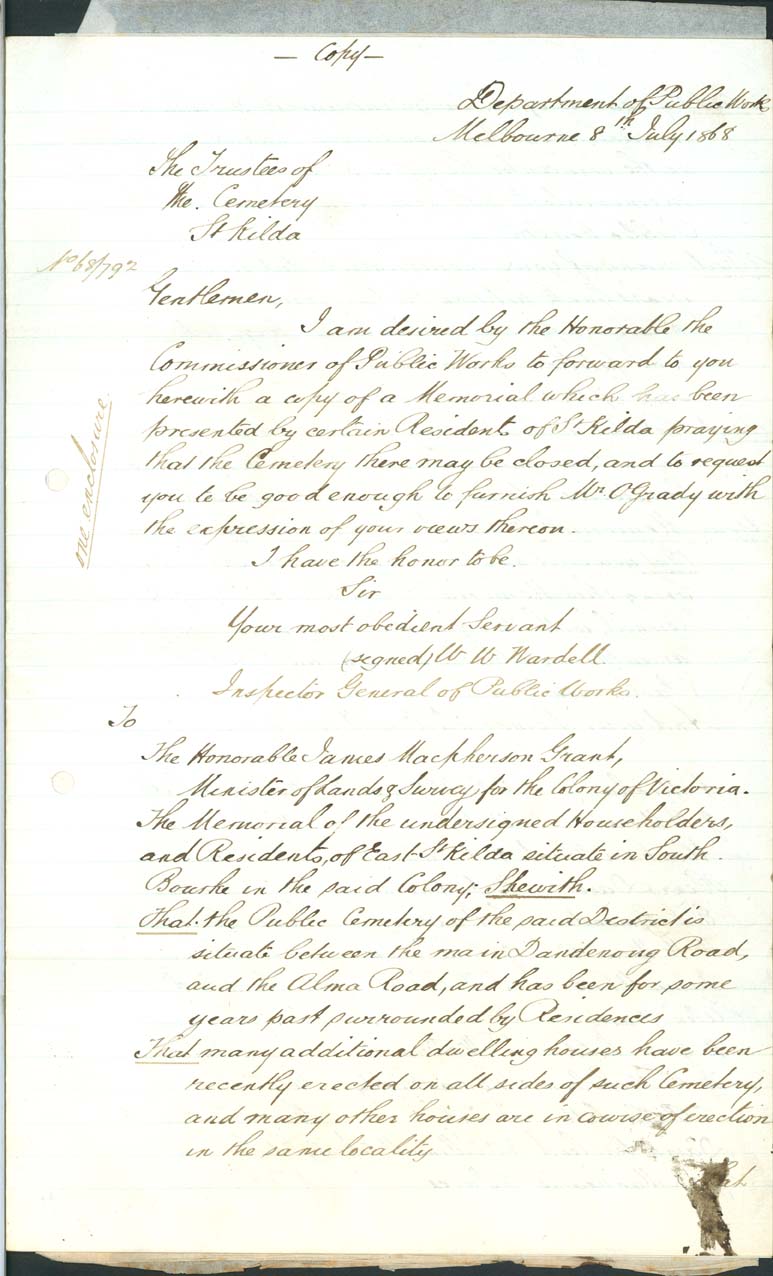 — Copy —
Department of Public Work
Melbourne 8th July 1868
The Trustees of
The. Cemetery
St Kilda
No 68/792
Gentlemen,
I am desired by the Honorable the
Commissioner of Public Works to forward to you
herewith a copy of a Memorial which has been
presented by certain Residents of St Kilda praying
that the Cemetery there may be closed, and to request
you to be good enough to furnish Mr O'Grady with
the expression of your views thereon.
one enclosure.
I have the honor to be.
Sir
Your most obedient Servant
(signed) W W Wardell.
Inspector General of Public Works.
To
The Honorable James Macpherson Grant,
Minister of Lands & Survey for the Colony of Victoria.
The Memorial of the undersigned Householders,
and Residents, of East St Kilda situate in South
Bourke in the said Colony; Shewith.
That the Public Cemetery of the said District is
situate between the main Dandenong Road,
and the Alma Road, and has been for some
years past surrounded by Residences
That many additional dwelling houses have been
recently erected on all sides of such Cemetery,
and many other houses are in course of erection
in the same locality